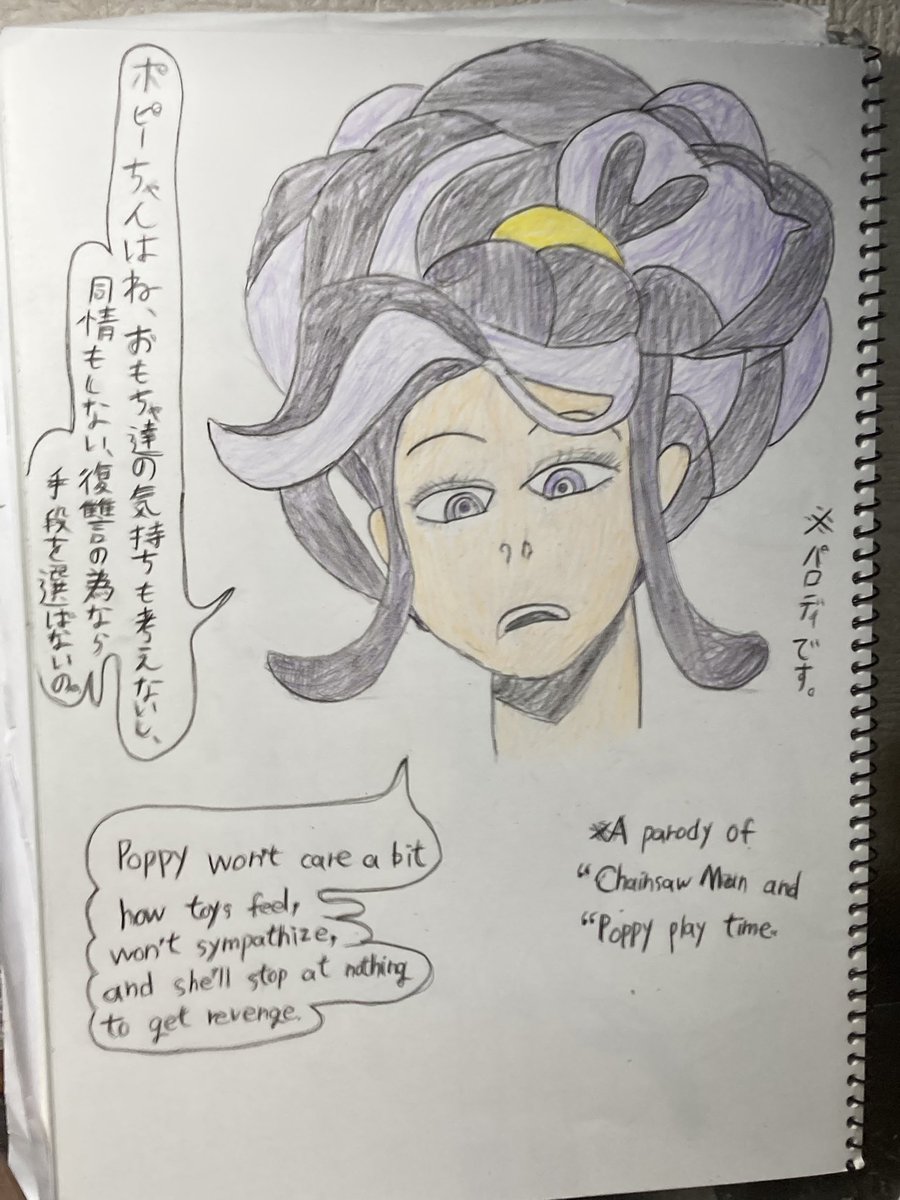 ポピーちゃんはね、おもちゃ達の気持ちも考えないし、
同情もしない、復讐の為なら
手段を選ばないの。
※パロディです。
Poppy won't care a bit
how toys feel,
won't sympathize,
and she'll stop at nothing
to get revenge.
※A parody of
“Chainsaw Man and
“Poppy play time.